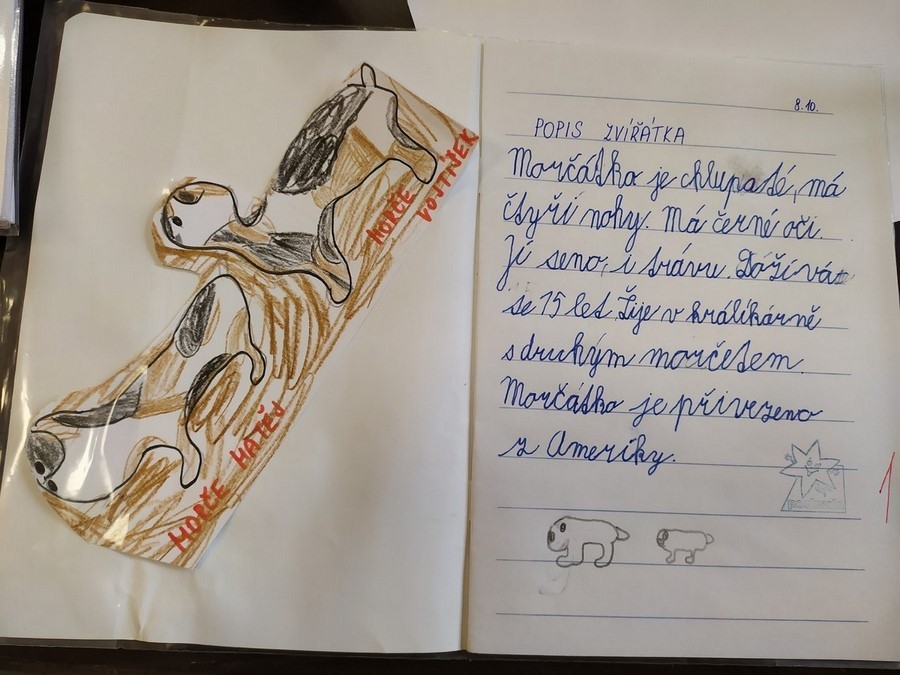 MORČE VOJTÍŠEK
MORČE MATĚJ
8.10.
POPIS ZVÍŘÁTKA
Morčátko je chlupaté, má
čtyři nohy. Má černé oči.
Jí seno, i trávu. Dožívá
se 15 let. Žije v králíkárně
s druhým morčetem.
Morčátko je přivezeno
z Ameriky.
1